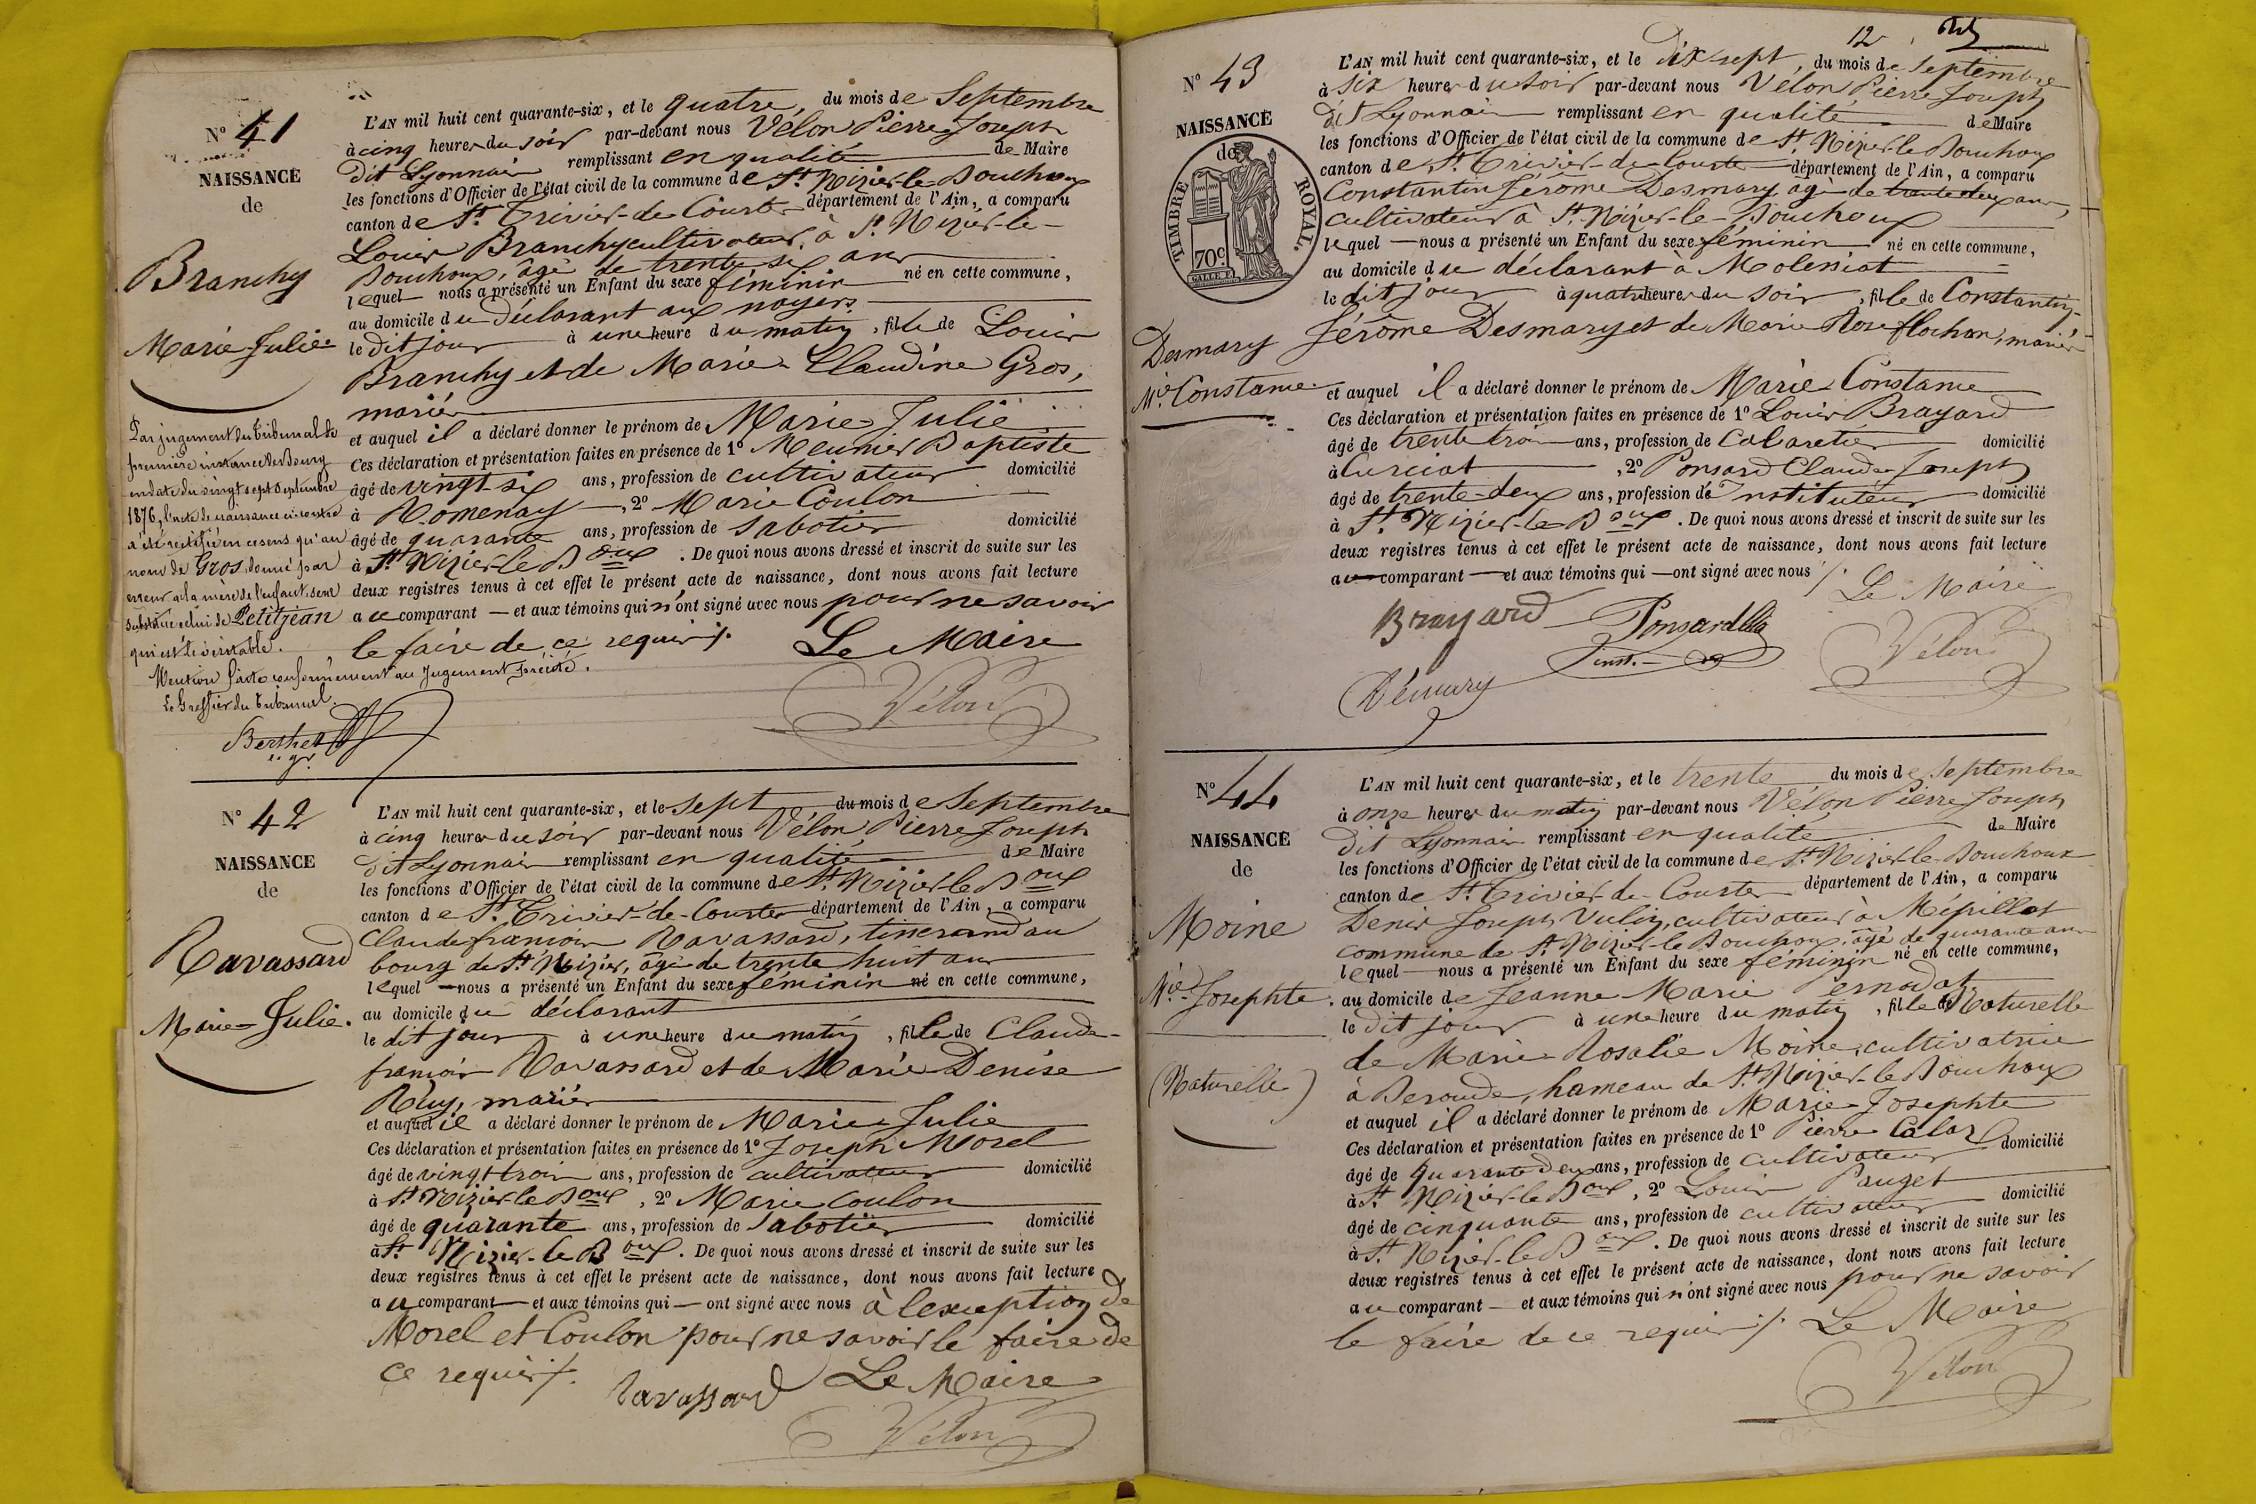 N° 41
NAISSANCE
de
Branchy
Marie Julie
Par jugement du tribunal de
première instance de Bourg
en date du vingt sept Septembre
1876, l'acte de naissance ci-contre
a été rectifié en ce sens qu'au
nom de Gros, donné par
erreur à la mère de l'enfant, sera
substitué celui de Petitjean
qui est le véritable.
Mention faite conformément au Jugement précité.
Le Greffier du tribunal.
Berthet
c. gr.
L'AN mil huit cent quarante-six, et le quatre, du mois de Septembre
à cinq heures du soir par-devant nous Vélon Pierre Joseph
dit Lyonnais remplissant en qualité de Maire
les fonctions d'Officier de l'état civil de la commune de St Nizier-le-Bouchoux
canton de St Trivier-de-Courtes département de l'Ain, a comparu
Louis Branchy cultivateur, à St Nizier-le-
Bouchoux, âgé de trente six ans
lequel nous a présenté un Enfant du sexe féminin né en cette commune,
au domicile du Déclarant aux noyers
le dit jour à une heure du matin, fille de Louis
Branchy et de Marie Claudine Gros,
mariés
et auquel il a déclaré donner le prénom de Marie Julie
Ces déclaration et présentation faites en présence de 1° Meunier Baptiste
âgé de vingt-six ans, profession de cultivateur domicilié
à Romenay, 2° Marie Coulon
âgé de quarante ans, profession de sabotier domicilié
à St Nizier-le-Boux. De quoi nous avons dressé et inscrit de suite sur les
deux registres tenus à cet effet le présent acte de naissance, dont nous avons fait lecture
au comparant — et aux témoins qui n'ont signé avec nous pour ne savoir
le faire de ce requis ./.
Le Maire
Vélon
N° 42
NAISSANCE
de
Ravassard
Marie Julie.
L'AN mil huit cent quarante-six, et le sept du mois de Septembre
à cinq heures du soir par-devant nous Vélon Pierre Joseph
dit Lyonnais remplissant en qualité de Maire
les fonctions d'Officier de l'état civil de la commune de St Nizier-le-Boux
canton de St Trivier-de-Courtes département de l'Ain, a comparu
Claude françois Ravassard, tisserand au
bourg de St Nizier, âgé de trente huit ans
lequel — nous a présenté un Enfant du sexe féminin né en cette commune,
au domicile du déclarant
le dit jour à une heure du matin, fille de Claude-
françois Ravassard et de Marie Denise
Ruy, mariés
et auquel il a déclaré donner le prénom de Marie Julie
Ces déclaration et présentation faites en présence de 1° Joseph Morel
âgé de vingt trois ans, profession de cultivateur domicilié
à St Nizier-le-Boux, 2° Marie Coulon
âgé de quarante ans, profession de sabotier domicilié
à St Nizier-le-Boux. De quoi nous avons dressé et inscrit de suite sur les
deux registres tenus à cet effet le présent acte de naissance, dont nous avons fait lecture
au comparant — et aux témoins qui — ont signé avec nous à l'exception de
Morel et Coulon pour ne savoir le faire de
ce requis ./.
Ravassard
Le Maire
Vélon
12
N° 43
NAISSANCE
de
TIMBRE ROYAL.
70c.
Desmary
Mie Constance
L'AN mil huit cent quarante-six, et le dix sept, du mois de Septembre
à six heures du soir par-devant nous Vélon Pierre Joseph
dit Lyonnais remplissant en qualité de Maire
les fonctions d'Officier de l'état civil de la commune de St Nizier le Bouchoux
canton de St Trivier-de-Courtes département de l'Ain, a comparu
Constantin Jérôme Desmary âgé de trente deux ans,
cultivateur à St Nizier-le-Bouchoux
lequel — nous a présenté un Enfant du sexe féminin né en cette commune,
au domicile du déclarant à Molessiat
le dit jour à quatre heures du soir, fille de Constantin-
Jérôme Desmary et de Marie Rose flochon, mariés
et auquel il a déclaré donner le prénom de Marie Constance
Ces déclaration et présentation faites en présence de 1° Louis Brayard
âgé de trente trois ans, profession de Cabaretier domicilié
à Curciat, 2° Ponsard Claude Joseph
âgé de trente-deux ans, profession de Instituteur domicilié
à St Nizier-le-Boux. De quoi nous avons dressé et inscrit de suite sur les
deux registres tenus à cet effet le présent acte de naissance, dont nous avons fait lecture
au comparant — et aux témoins qui — ont signé avec nous ./.
Le Maire
Brayard
Ponsard
inst.
Vélon
N° 44
NAISSANCE
de
Moine
Mie Josephte.
(Naturelle)
L'AN mil huit cent quarante-six, et le trente du mois de Septembre
à onze heures du matin par-devant nous Vélon Pierre Joseph
dit Lyonnais remplissant en qualité de Maire
les fonctions d'Officier de l'état civil de la commune de St Nizier-le-Bouchoux
canton de St Trivier-de-Courtes département de l'Ain, a comparu
Denis Joseph Vulin, cultivateur à Mépillat
commune de St Nizier-le Bouchoux, âgé de quarante ans
lequel — nous a présenté un Enfant du sexe féminin né en cette commune,
au domicile de Jeanne Marie Pernodat
le dit jour à une heure du matin, fille de Naturelle
de Marie Rosalie Moine, cultivatrice
à Beroude, hameau de St Nizier-le Bouchoux
et auquel il a déclaré donner le prénom de Marie Josephte
Ces déclaration et présentation faites en présence de 1° Pierre Calas
âgé de quarante deux ans, profession de cultivateur domicilié
à St Nizier-le-Boux, 2° Louis Pauget
âgé de cinquante ans, profession de cultivateur domicilié
à St Nizier-le-Boux. De quoi nous avons dressé et inscrit de suite sur les
deux registres tenus à cet effet le présent acte de naissance, dont nous avons fait lecture
au comparant — et aux témoins qui n'ont signé avec nous pour ne savoir
le faire de ce requis ./.
Le Maire
Vélon